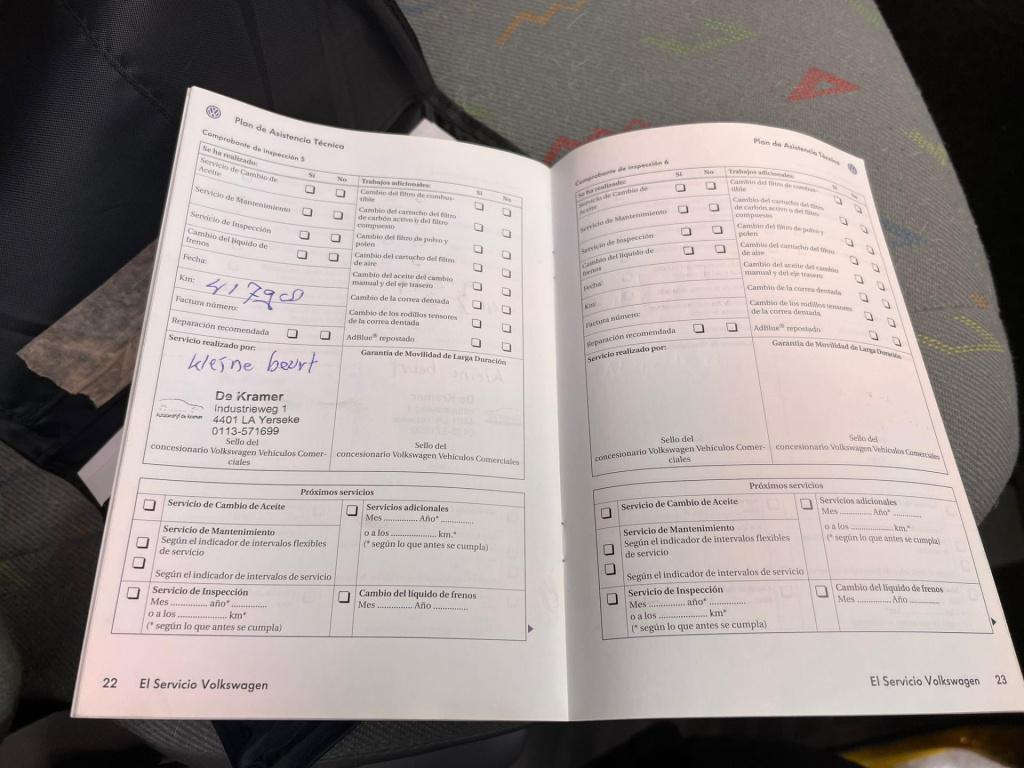 Plan de Asistencia Técnica
Comprobante de inspección 5
Se ha realizado:
Sí No
Servicio de Cambio de Aceite
Servicio de Mantenimiento
Servicio de Inspección
Cambio del líquido de frenos
Fecha:
Km:
Factura número:
Reparación recomendada
Trabajos adicionales:
Sí No
Cambio del filtro de combus-
tible
Cambio del cartucho del filtro
de carbón activo o del filtro
compuesto
Cambio del filtro de polvo y
polen
Cambio del cartucho del filtro
de aire
Cambio del aceite del cambio
manual y del eje trasero
Cambio de la correa dentada
Cambio de los rodillos tensores
de la correa dentada
AdBlue® repostado
Servicio realizado por:
kleine beurt
De Kramer
Industrieweg 1
4401 LA Yerseke
0113-571699
Autobedrijf de Kramer
Sello del
concesionario Volkswagen Vehículos Comer-
ciales
Garantía de Movilidad de Larga Duración
Sello del
concesionario Volkswagen Vehículos Comerciales
Próximos servicios
Servicio de Cambio de Aceite
Servicio de Mantenimiento
Según el indicador de intervalos flexibles
de servicio
Según el indicador de intervalos de servicio
Servicio de Inspección
Mes ............. año* .............
o a los ................... km*
(* según lo que antes se cumpla)
Servicios adicionales
Mes ............. Año* ............
o a los ................. km.*
(* según lo que antes se cumpla)
Cambio del líquido de frenos
Mes ............. Año .............
22 El Servicio Volkswagen
Plan de Asistencia Técnica
Comprobante de inspección 6
Se ha realizado:
Sí No
Servicio de Cambio de
Aceite
Servicio de Mantenimiento
Servicio de Inspección
Cambio del líquido de
frenos
Fecha:
Km:
Factura número:
Reparación recomendada
Trabajos adicionales:
Sí No
Cambio del filtro de combus-
tible
Cambio del cartucho del filtro
de carbón activo o del filtro
compuesto
Cambio del filtro de polvo y
polen
Cambio del cartucho del filtro
de aire
Cambio del aceite del cambio
manual y del eje trasero
Cambio de la correa dentada
Cambio de los rodillos tensores
de la correa dentada
AdBlue® repostado
Servicio realizado por:
Sello del
concesionario Volkswagen Vehículos Comer-
ciales
Garantía de Movilidad de Larga Duración
Sello del
concesionario Volkswagen Vehículos Comerciales
Próximos servicios
Servicio de Cambio de Aceite
Servicio de Mantenimiento
Según el indicador de intervalos flexibles
de servicio
Según el indicador de intervalos de servicio
Servicio de Inspección
Mes ............. año* .............
o a los ................... km*
(* según lo que antes se cumpla)
Servicios adicionales
Mes ............. Año* ............
o a los ................. km.*
(* según lo que antes se cumpla)
Cambio del líquido de frenos
Mes ............. Año .............
El Servicio Volkswagen 23